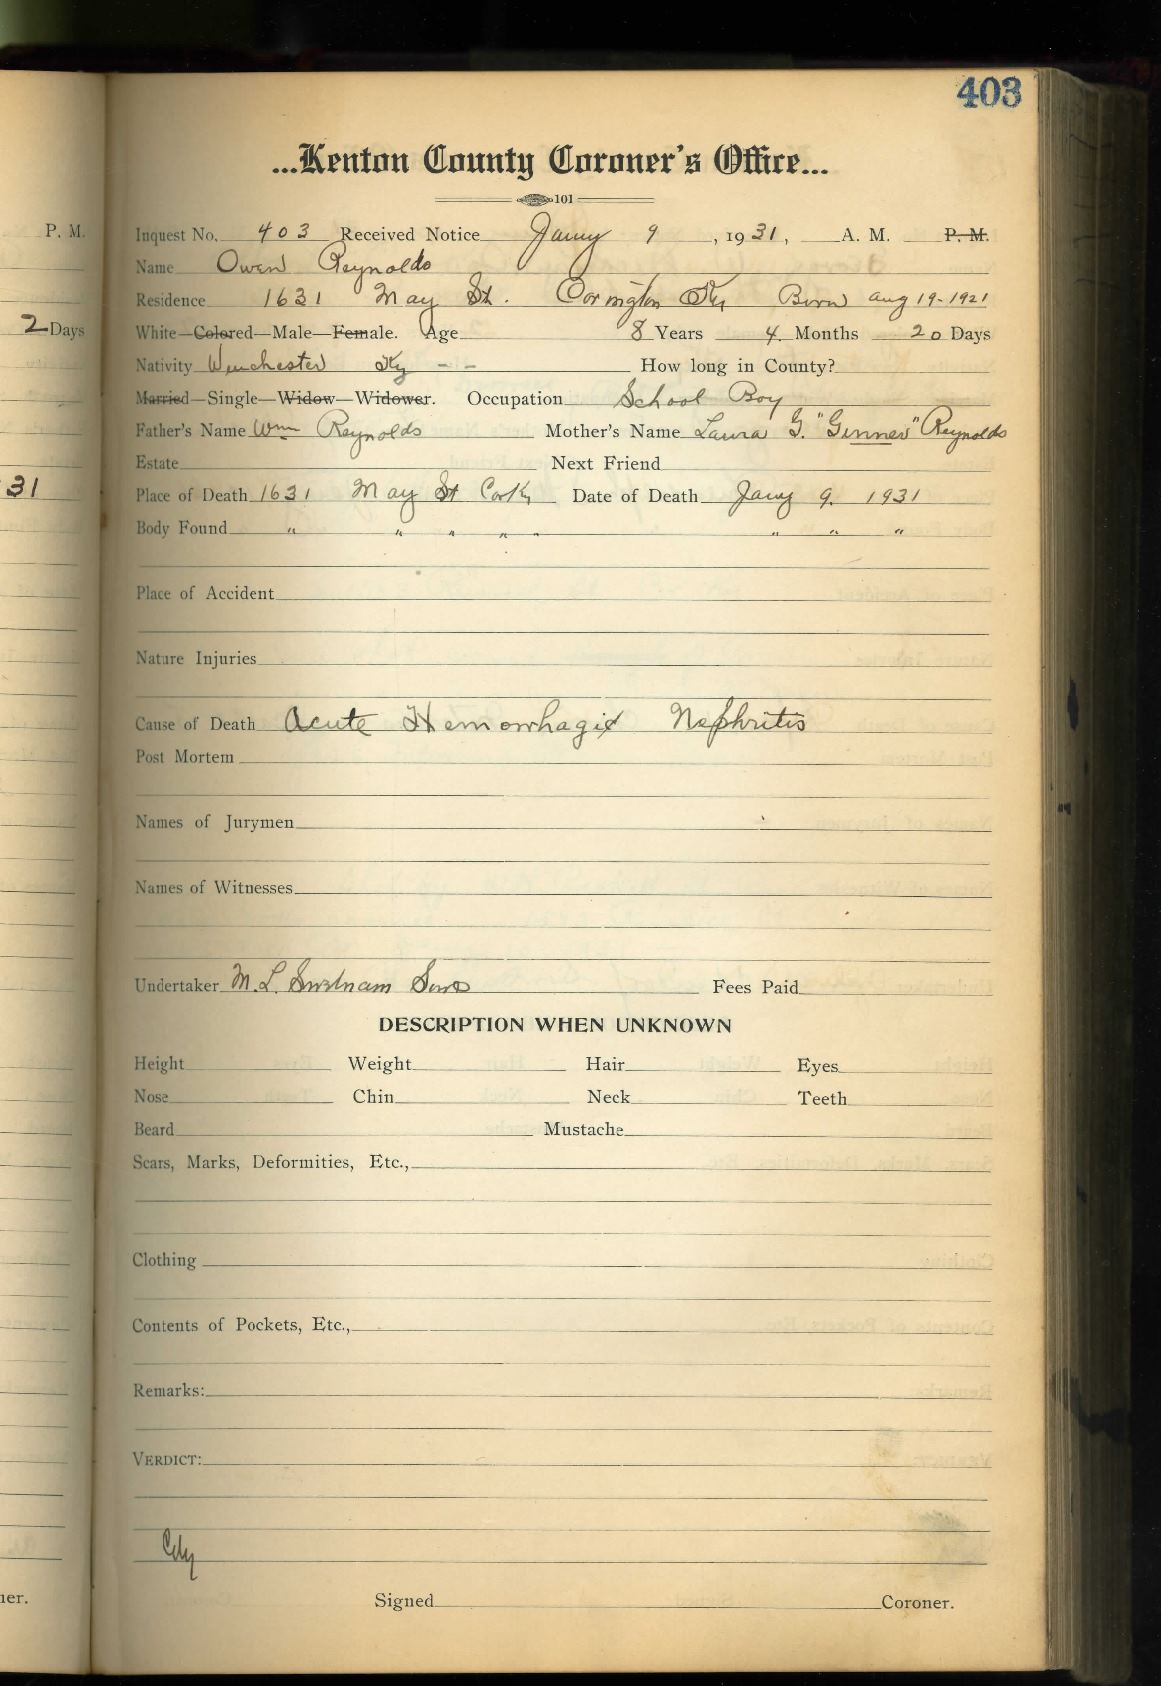 403
...Kenton County Coroner's Office...
101
P. M.
Inquest No. 403 Received Notice Jany 9, 1931, A. M. P. M.
Name Owen Reynolds
Residence 1631 May St. Covington Ky Born Aug 19-1921
2 Days
White—Colored—Male—Female. Age 8 Years 4 Months 20 Days
Nativity Winchester Ky - - How long in County?
Married—Single—Widow—Widower. Occupation School Boy
Father's Name Wm Reynolds Mother's Name Laura G. "Ginner" Reynolds
Estate Next Friend
31
Place of Death 1631 May St Cov Ky Date of Death Jany 9. 1931
Body Found " " " " " " " "
Place of Accident
Nature Injuries
Cause of Death Acute Hemorrhagic Nephritis
Post Mortem
Names of Jurymen
Names of Witnesses
Undertaker M. L. Swetnam Sons Fees Paid
DESCRIPTION WHEN UNKNOWN
Height Weight Hair Eyes
Nose Chin Neck Teeth
Beard Mustache
Scars, Marks, Deformities, Etc.,
Clothing
Contents of Pockets, Etc.,
Remarks:
VERDICT:
City
ner.
Signed Coroner.